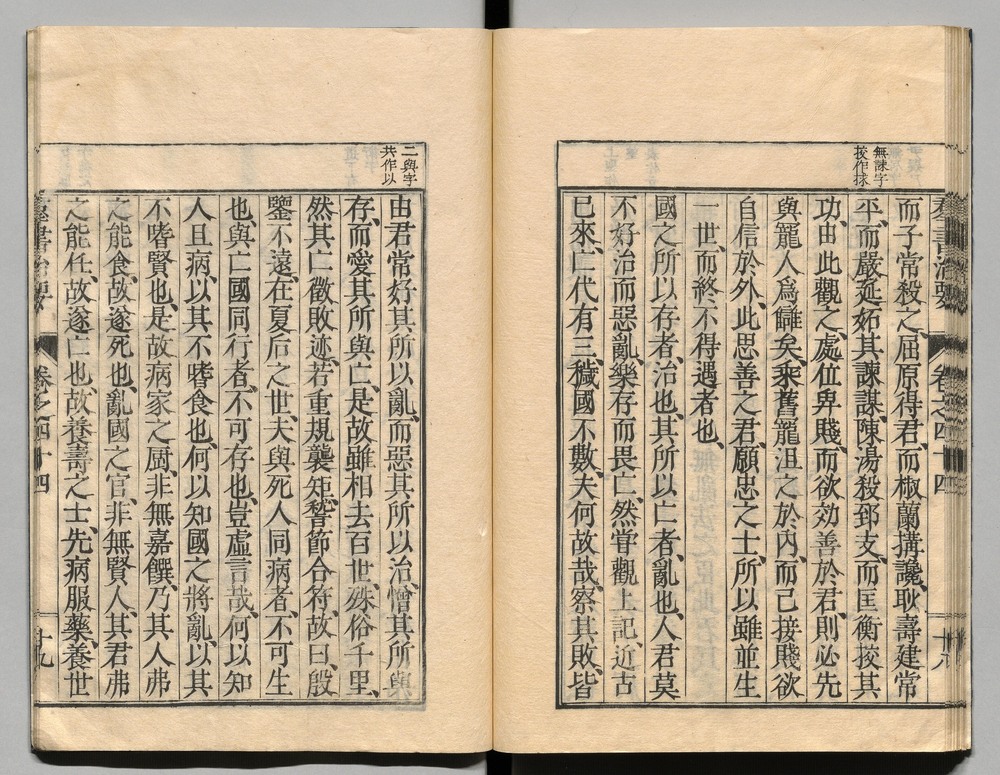 無諫字
挍作捄
羣書治要
卷之四十四
十八
而子常殺之、屈原得君、而椒蘭搆讒、耿壽建常
平、而嚴延妬其諫謀、陳湯殺郅支、而匡衡挍其
功、由此觀之、處位卑賤、而欲効善於君、則必先
與寵人爲讎矣、乘舊寵沮之於內、而己接賤欲
自信於外、此思善之君、願忠之士、所以雖並生
一世、而終不得遇者也、
國之所以存者、治也、其所以亡者、亂也、人君莫
不好治而惡亂、樂存而畏亡、然甞觀上記、近古
已來、亡代有三、穢國不數、夫何故哉、察其敗、皆
二與字
共作以
由君常好其所以亂、而惡其所以治、憎其所與
存、而愛其所與亡、是故雖相去百世、殊俗千里、
然其亡徵敗迹、若重規襲矩、稽節合符、故曰、殷
鑒不遠、在夏后之世、夫與死人同病者、不可生
也、與亡國同行者、不可存也、豈虛言哉、何以知
人且病、以其不嗜食也、何以知國之將亂、以其
不嗜賢也、是故病家之厨、非無嘉饌、乃其人弗
之能食、故遂死也、亂國之官、非無賢人、其君弗
之能任、故遂亡也、故養壽之士、先病服藥、養世
羣書治要
卷之四十四
十九